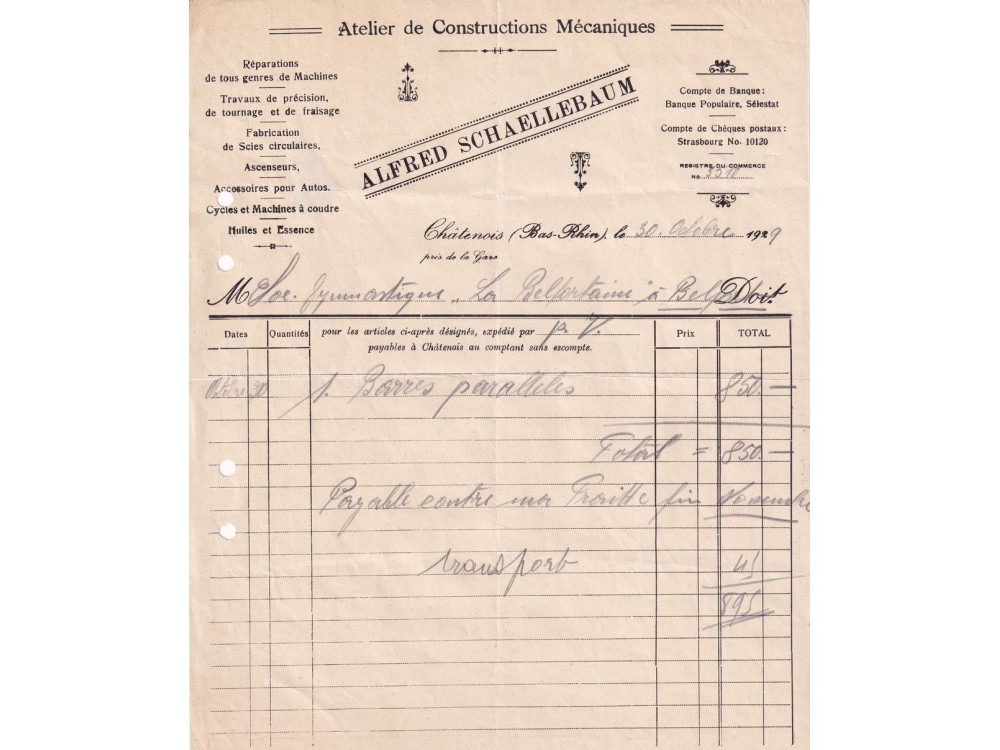 Atelier de Constructions Mécaniques
Réparations
de tous genres de Machines
Travaux de précision,
de tournage et de fraisage
Fabrication
de Scies circulaires,
Ascenseurs,
Accessoires pour Autos.
Cycles et Machines à coudre
Huiles et Essence
ALFRED SCHAELLEBAUM
Compte de Banque:
Banque Populaire, Sélestat
Compte de Chèques postaux:
Strasbourg No. 10120
REGISTRE DU COMMERCE
No.
Châtenois (Bas-Rhin), le 30. Octobre 1929
près de la Gare
M Soc. Gymnastique "La Belfortaine" à Belf Doit
Dates Quantités pour les articles ci-après désignés, expédié par p. V. Prix TOTAL
payables à Châtenois au comptant sans escompte.
Octobre 30 1. Barres paralleles 850.—
Total = 850.—
Payable contre ma Traitte fin Novembre
transport 45
895